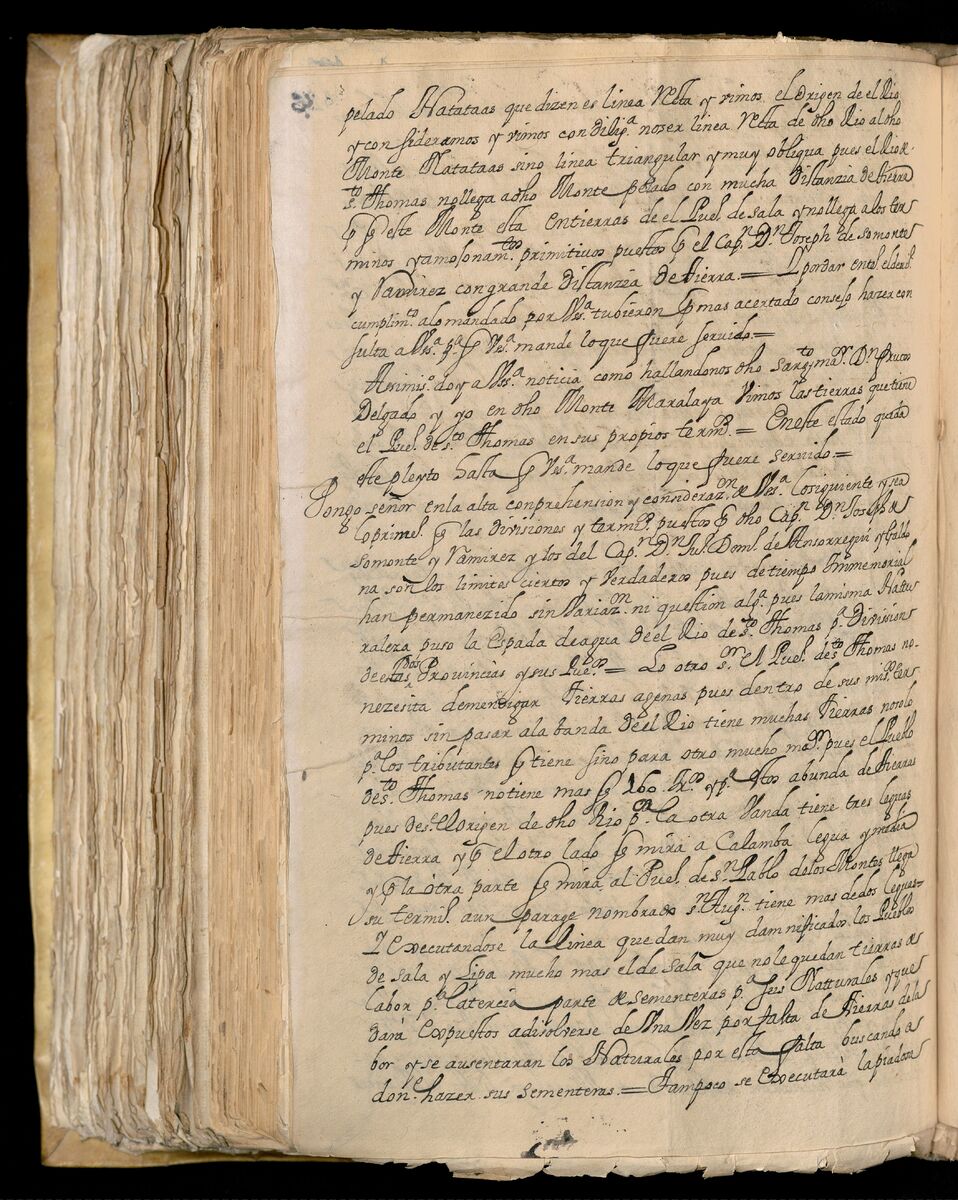 pelado Natataas que dizen es linea recta y vimos el origen de el Rio
y consideramos y vimos con dilig.ª no ser linea recta de dho Rio al dho
Monte Natataas sino linea triangular y muy obliqua pues el Rio
s.to Thomas no llega a dho Monte pelado con mucha distanzia de tierra
este Monte esta en tierras de el Puel. de sala y no llega a los ter
minos y amojonam.tos primitivos puestos el Cap.n D.n Joseph de Somonte
y Ramirez con grande distanzia de tierra =
cumplim.to a lo mandado por Vs.ª tubieron mas acertado consejo hazer con
sulta a Vs.ª p.ª Vs.ª mande lo que fuere servido =
Assimis.o doy a Vs.ª noticia como hallandonos dho sarg.to ma.r D.n
Delgado y yo en dho Monte Maralaya vimos las tierras que tiene
el Puel. de s.to Thomas en sus propios term.s = En este estado queda
este pleyto hasta Vs.ª mande lo que fuere servido =
Pongo señor en la alta conprehension y consideraz.on de Vs.ª lo siguiente y sea
lo prim.o las divisiones y term.s puestos dho Cap.n D.n Joseph de
Somonte y Ramirez y los del Cap.n D.n Ju.n Dom.o de Ansorregui y
na son los limites ciertos y verdaderos pues de tiempo Immemorial
han permanezido sin variaz.n ni question alg.ª pues la misma Natu
raleza puso la espada de agua de el Rio de s.to Thomas p.ª Divisiones
de estas dos Provincias y sus Pue.s = Lo otro s.r el Puel. de s.to Thomas no
nezesita de mendigar tierras agenas pues dentro de sus mis.os ter
minos sin pasar a la banda de el Rio tiene muchas tierras no solo
p.ª los tributantes tiene sino para otro mucho ma.s pues el Pueblo
de s.to Thomas no tiene mas 160 abunda de tierras
pues des.e el origen de dho Rio p.ª la otra vanda tiene tres leguas
de tierra y el otro lado mira a Calamba legua y media
y la otra parte mira al Puel. de s.n Pablo de los Montes llega
su term.o a un parage nombrado s.n Aug.n tiene mas de dos leguas =
Y executandose la linea quedan muy damnificados los Pueblos
de sala y Lipa mucho mas el de sala que no le quedan tierras de
labor p.ª la tercia parte de sementeras p.ª sus Natturales y que
dara expuestos a disolverse de una vez por falta de tierras de la
bor y se ausentaran los Naturales por esta falta buscando a
don.e hazer sus sementeras = Tampoco se executarà la piadosa